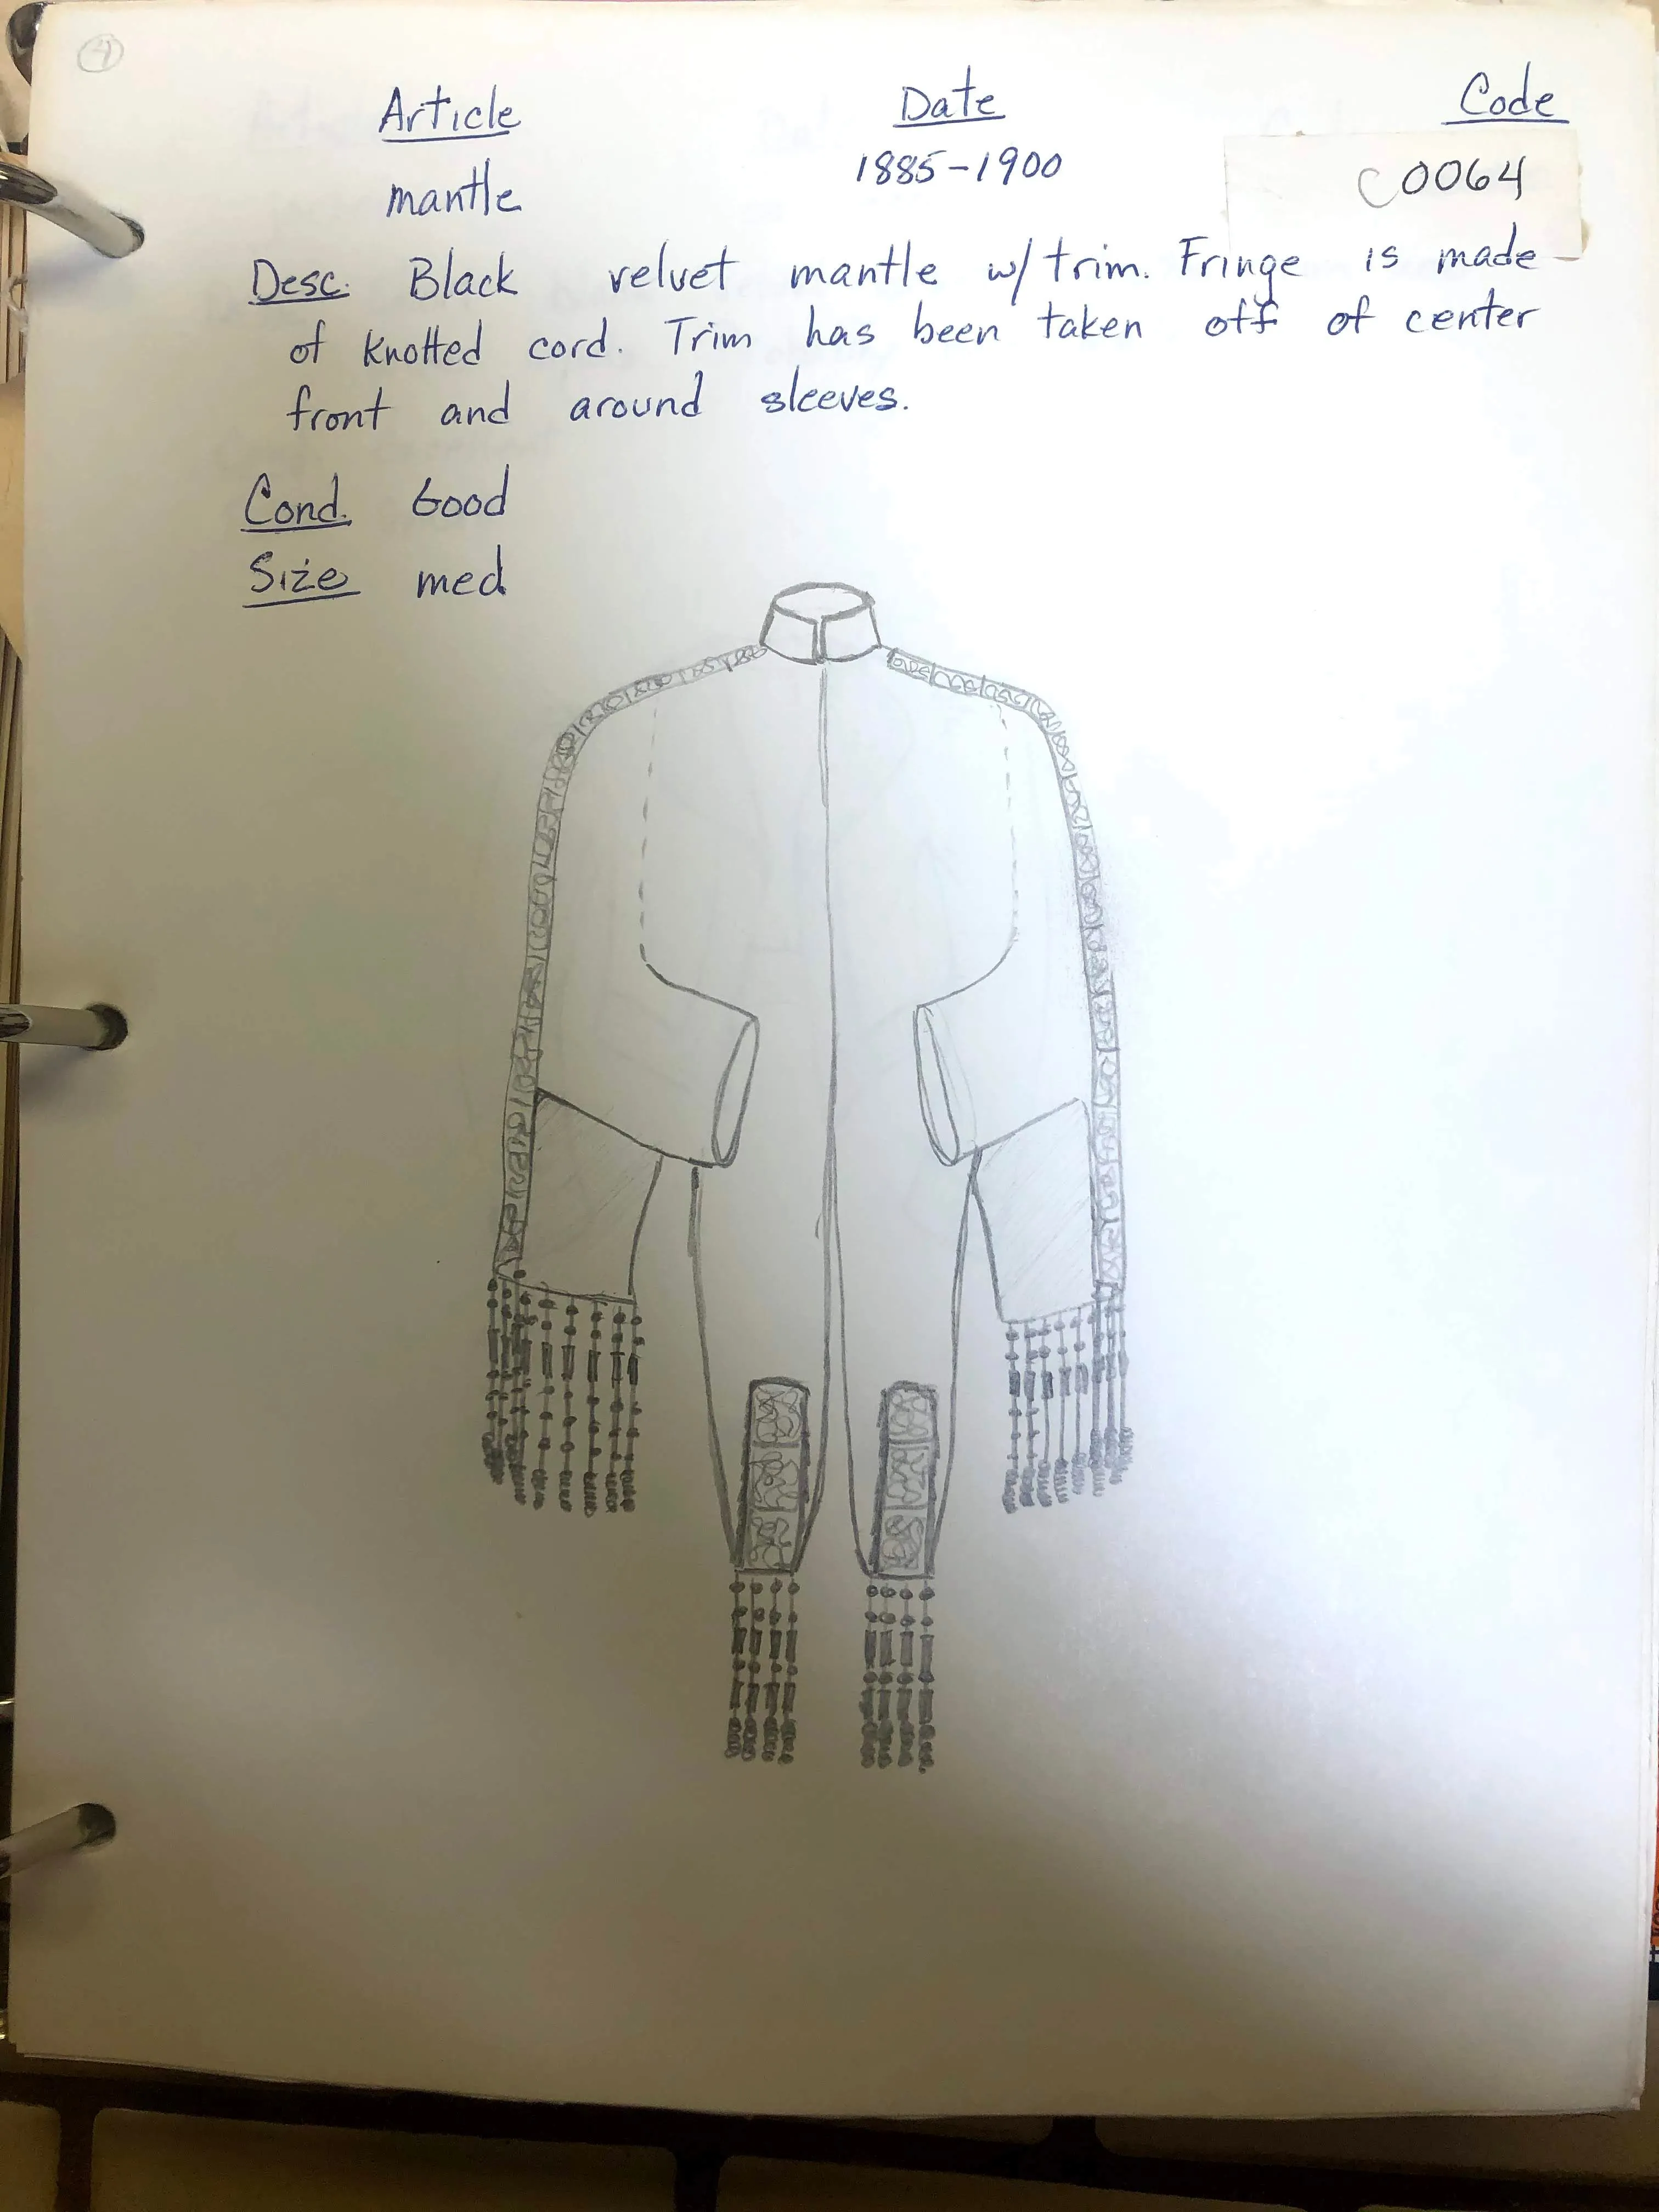 4
Article Date Code
mantle 1885-1900 C0064
Desc. Black velvet mantle w/ trim. Fringe is made
of knotted cord. Trim has been taken off of center
front and around sleeves.
Cond. Good
Size med